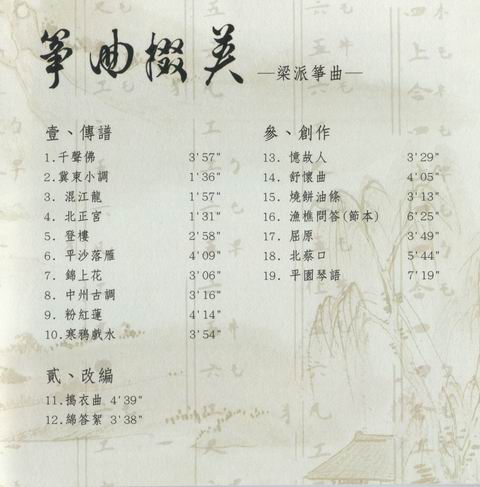 箏曲掇英
—梁派箏曲—
壹、傳譜
1.千聲佛 3'57"
2.冀東小調 1'36"
3. 混江龍 1'57"
4. 北正宮 1'31"
5. 登樓 2'58"
6. 平沙落雁 4'09"
7. 錦上花 3'06"
8. 中州古調 3'16"
9. 粉紅蓮 4'14"
10.寒鴉戲水 3'54"
貳、改編
11.搗衣曲 4'39"
12.綿答絮 3'38"
參、創作
13. 憶故人 3'29"
14. 舒懷曲 4'05"
15. 燒餅油條 3'13"
16. 漁樵問答(節本) 6'25"
17. 屈原 3'49"
18. 北蔡口 5'44"
19. 平園琴語 7'19"